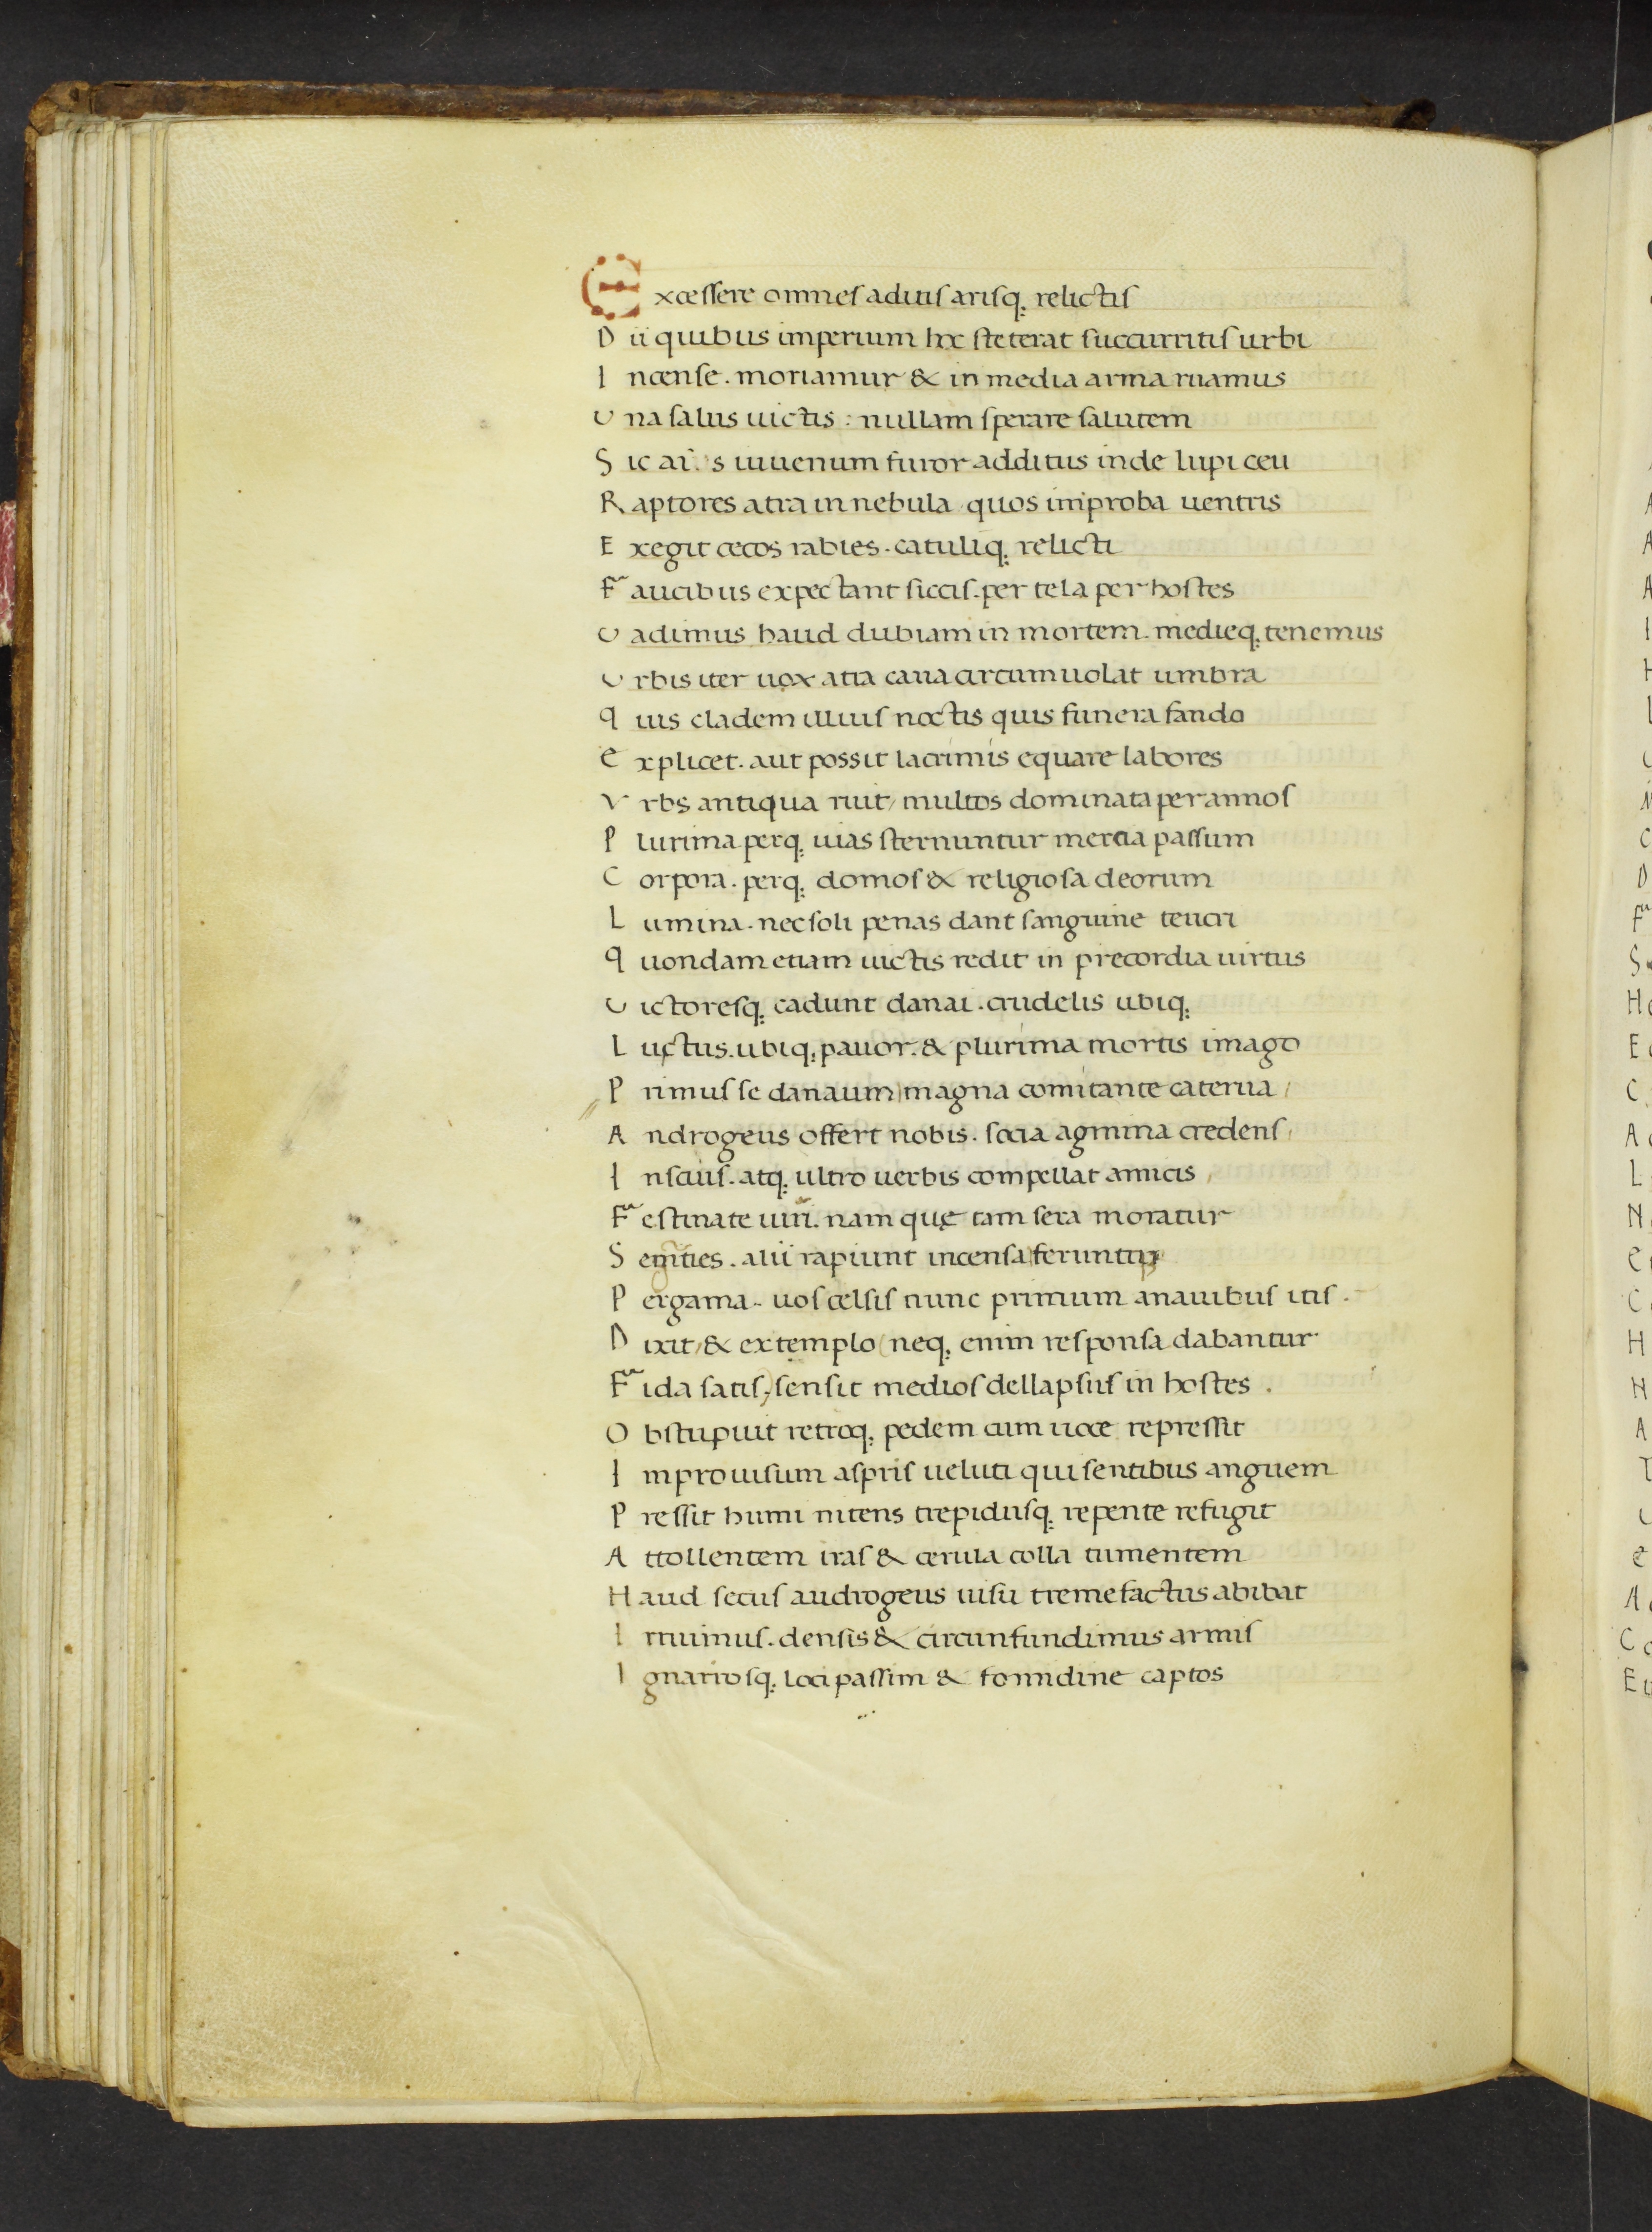 Excessere omnes aditis arisq; relictis
Dii quibus imperium hoc steterat succurritis urbi
Incense. moriamur & in media arma ruamus
Una salus uictis: nullam sperare salutem
Sic ai. s iuuenum furor additus inde lupi ceu
Raptores atra in nebula quos improba uentris
Exegit cecos rabies. catuliq; relicti
Faucibus expectant siccis. per tela per hostes
Uadimus haud dubiam in mortem. medieq; tenemus
Urbis iter nox atra caua circumuolat umbra
quis cladem illius noctis quis funera fando
explicet. aut possit lacrimis equare labores
Vrbs antiqua ruit, multos dominata per annos
Plurima perq; uias sternuntur inertia passum
Corpora. perq; domos & religiosa deorum
Lumina. nec soli penas dant sanguine teucri
quondam etiam uictis redit in precordia uirtus
Uictoresq; cadunt danai. crudelis ubiq;
Luctus. ubiq; pauor. & plurima mortis imago
Primus se danaum magna comitante caterua
Androgeus offert nobis. socia agmina credens
Inscius. atq; ultro uerbis compellat amicis
Festinate uiri. nam que tam sera moratur
Segnities. alii rapiunt incensa feruntq;
Pergama. uos celsis nunc primum a nauibus itis.
Dixit, & extemplo (neq; enim responsa dabantur
Fida satis) sensit medios dellapsus in hostes.
Obstupuit retroq; pedem cum uoce repressit
Improuisum aspris ueluti qui sentibus anguem
Pressit humi nitens trepidusq; repente refugit
Attollentem iras & cerula colla tumentem
Haud secus audrogeus uisu tremefactus abibat
Irruimus. densis & circunfundimus armis
Ignarosq; loci passim & formidine captos